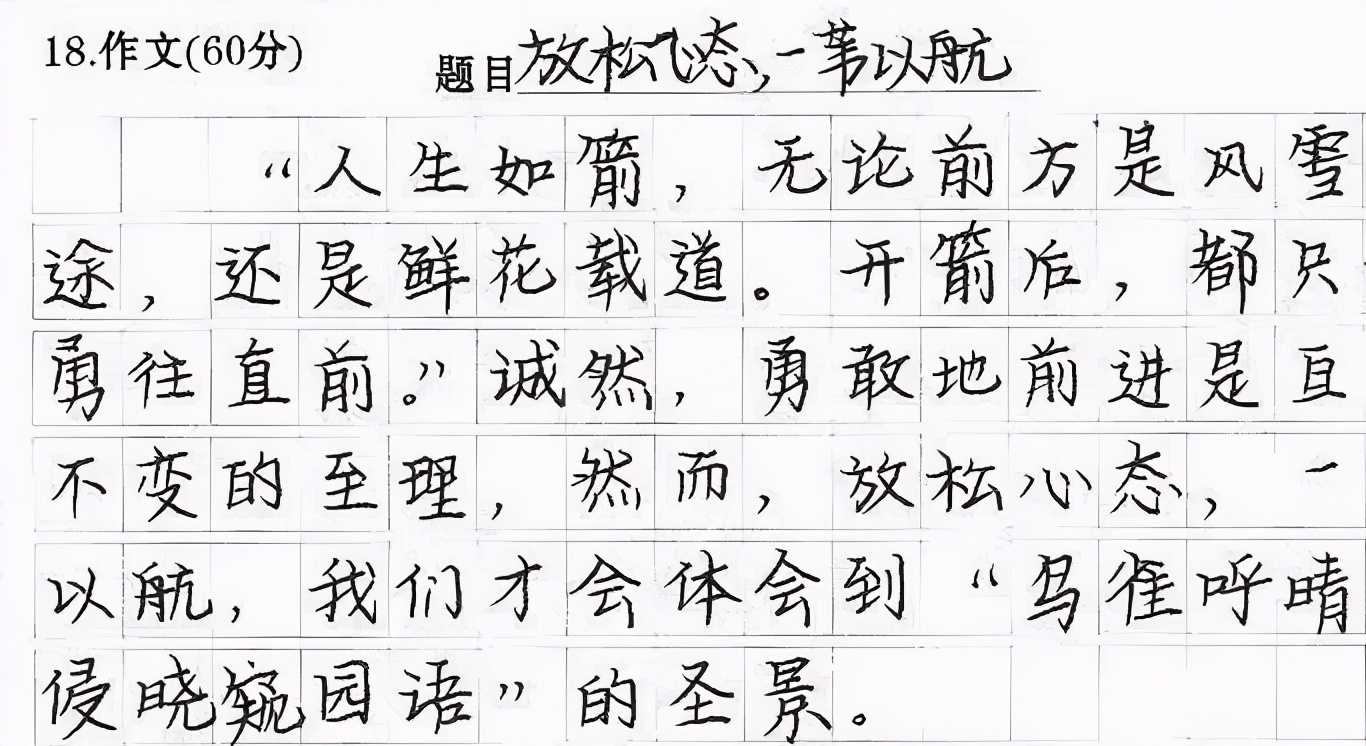 18.作文(60分)
题目放松心态,一苇以航
“人生如箭,无论前方是风雪
途,还是鲜花载道。开箭后,都只
勇往直前。”诚然,勇敢地前进是亘
不变的至理,然而,放松心态,一
以航,我们才会体会到“鸟雀呼晴
侵晓窥园语”的圣景。